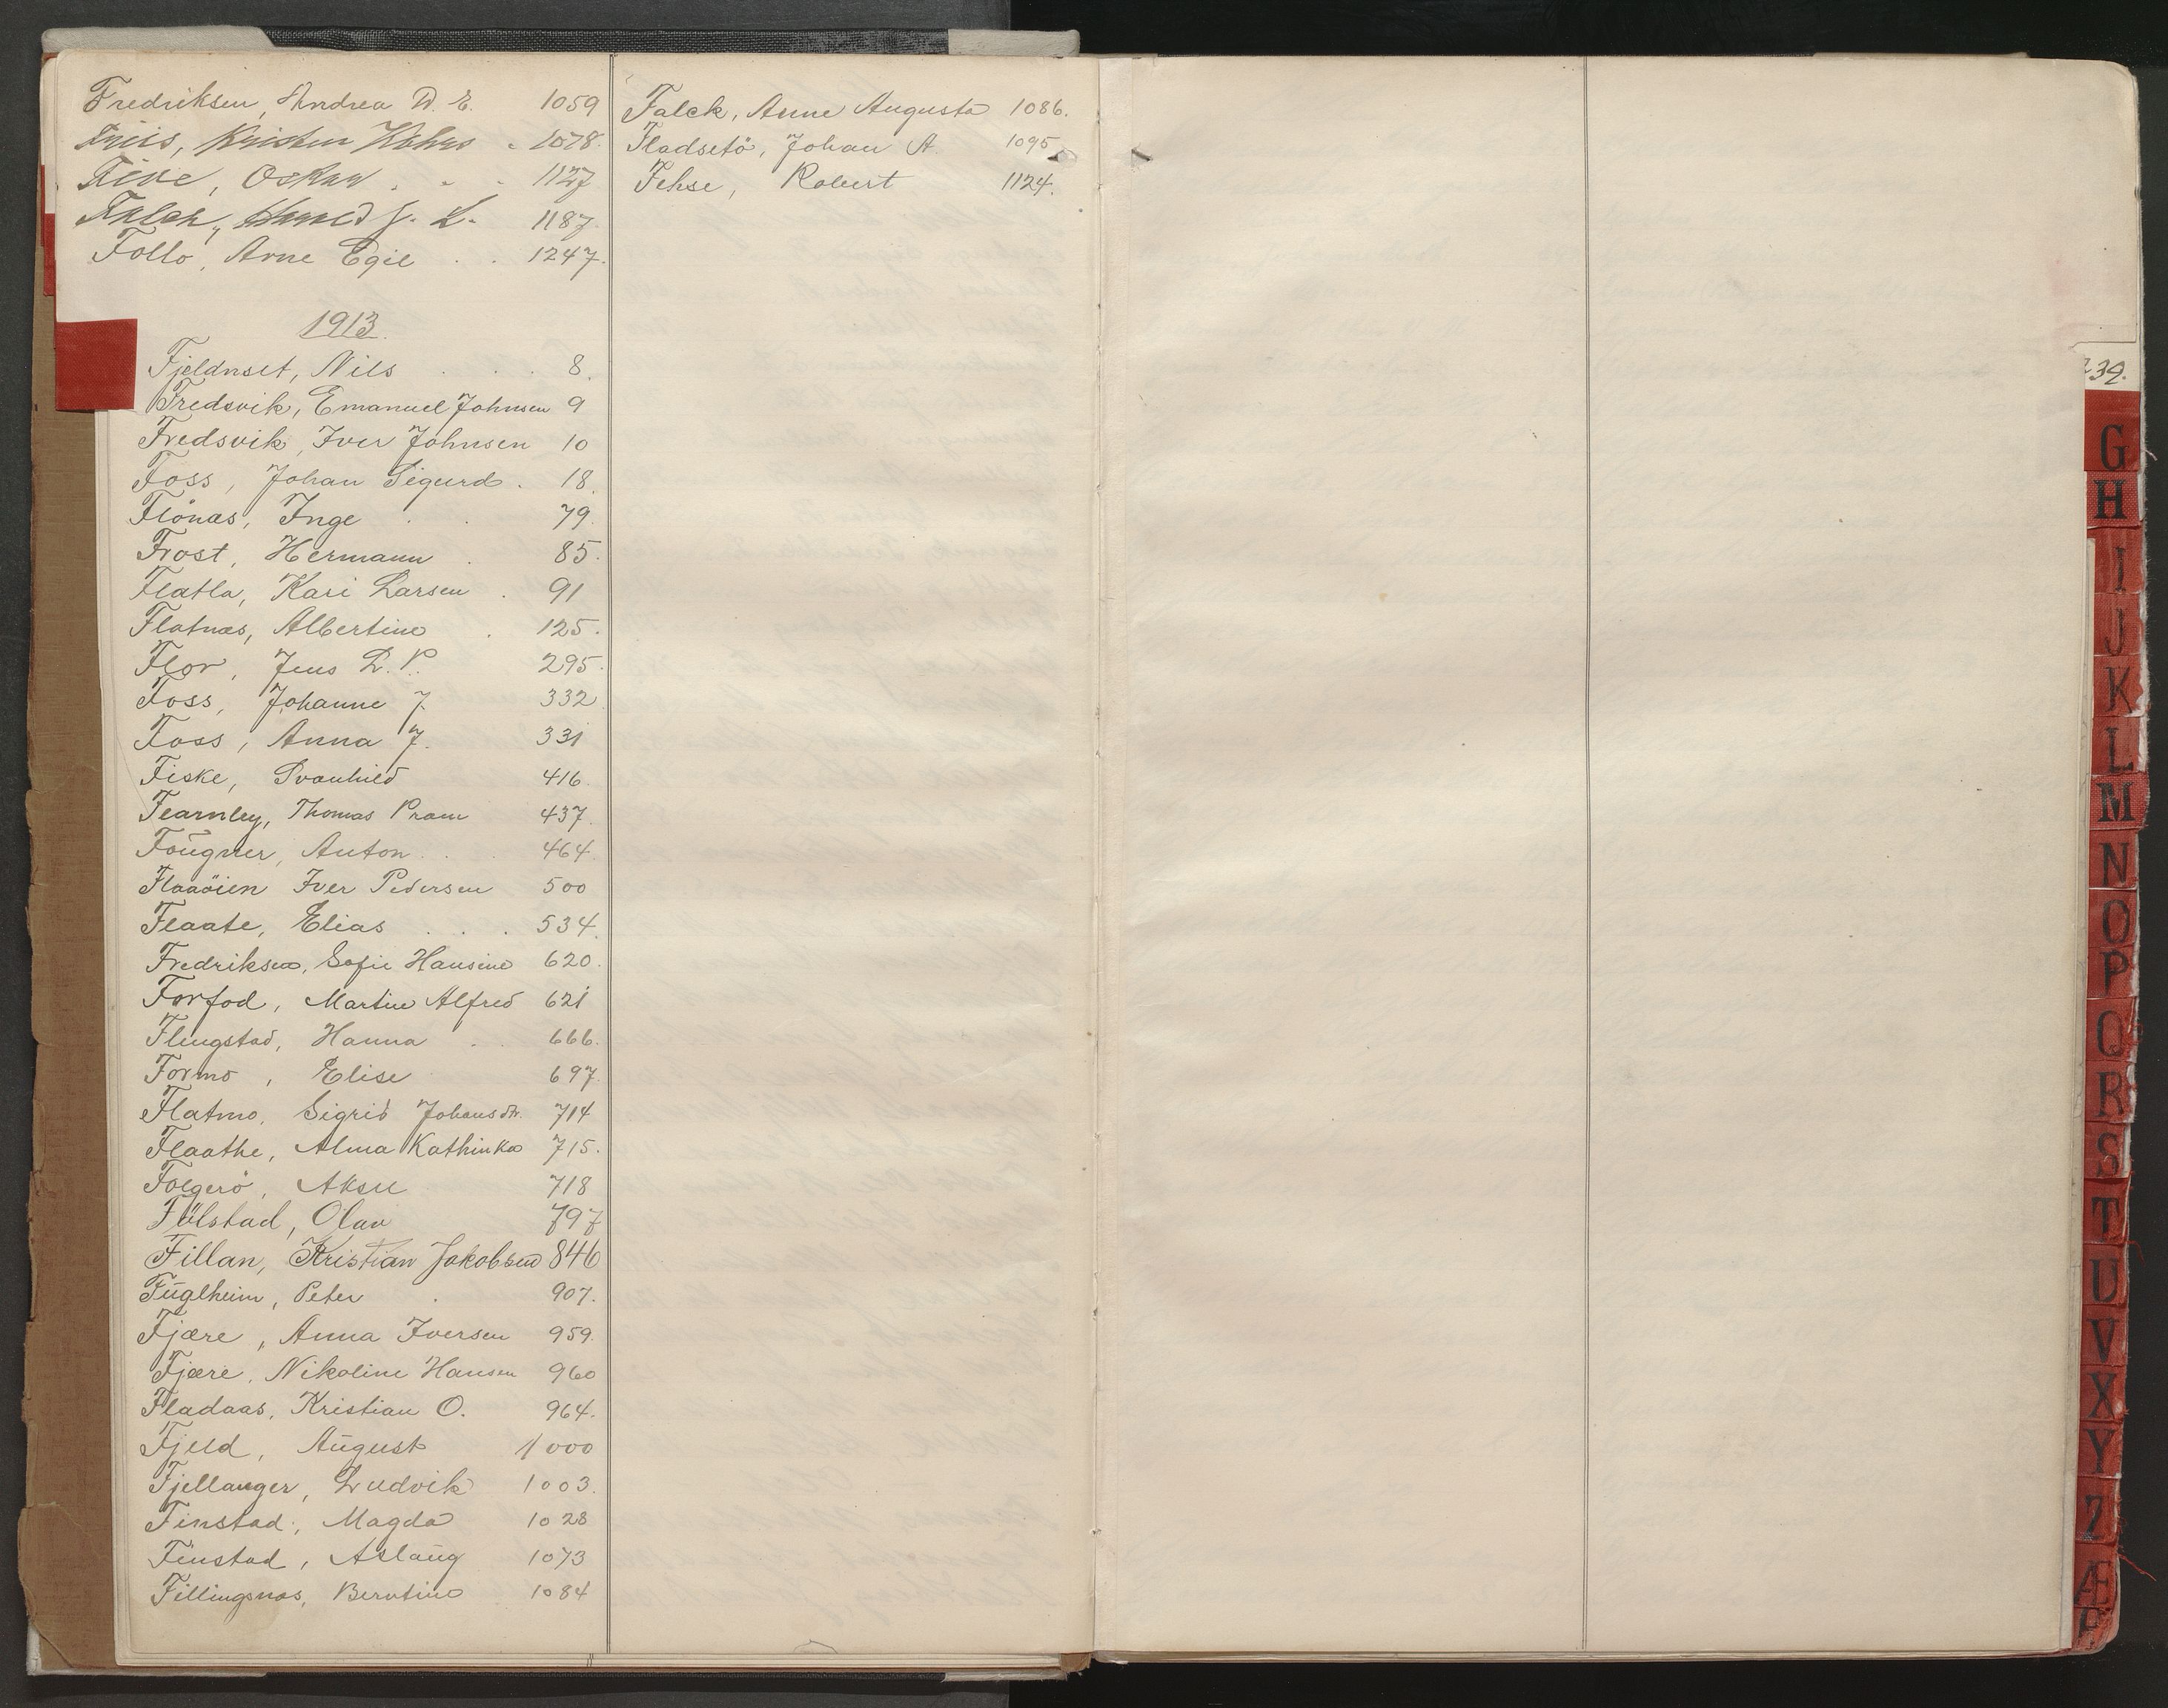 Fredriksen, Andrea D. E. 1059
Friis, Kristen 1078.
Five, Oskar . . . 1127
Falck, Harald J. L. 1187
Follo, Arne Egil . . 1247.
1913.
Fjeldnset, Nils . . . 8.
Fredsvik, Emanuel Johnsen 9
Fredsvik, Iver Johnsen 10
Foss, Johan Sigurd . 18.
Flönæs, Inge . . 79.
Frost, Hermann . 85.
Flatla, Kari Larsen . 91
Flatnæs, Albertine . 125.
Flor, Jens L. P. 295.
Foss, Johanne J. 332
Foss, Anna J. 331
Fiske, Svanhild 416.
Fearnley, Thomas Pram 437.
Fougner, Anton . . . 464.
Flaaöien Iver Pedersen 500
Flaate, Elias . . . 534.
Fredriksen, Sofie Hansine 620.
Forfod, Martin Alfred 621
Flengstad, Hanna . . 666.
Formo, Elise 697.
Flatmo, Sigrid Johansdtr. 714
Flaathe, Alma Kathinka 715.
Folgerö, Aksel 718
Fölstad, Olav 797
Fillan, Kristian Jakobsen 846
Fuglheim, Peter . 907.
Fjære, Anna Iversen 959.
Fjære, Nikoline Hansen 960
Fladaas, Kristian O. 964.
Fjeld, August 1000
Fjellanger, Ludvik 1003.
Finstad, Magda 1028
Finstad, Aslaug 1073
Fillingsnæs, Berntine 1084
Falck, Anne Augusta 1086.
Fladsetö, Johan A. 1095
Fehse, Robert 1124.
39.
G
H
I
J
K
L
M
N
O
P
Q
R
S
T
U
V
X
Y
Z
Æ